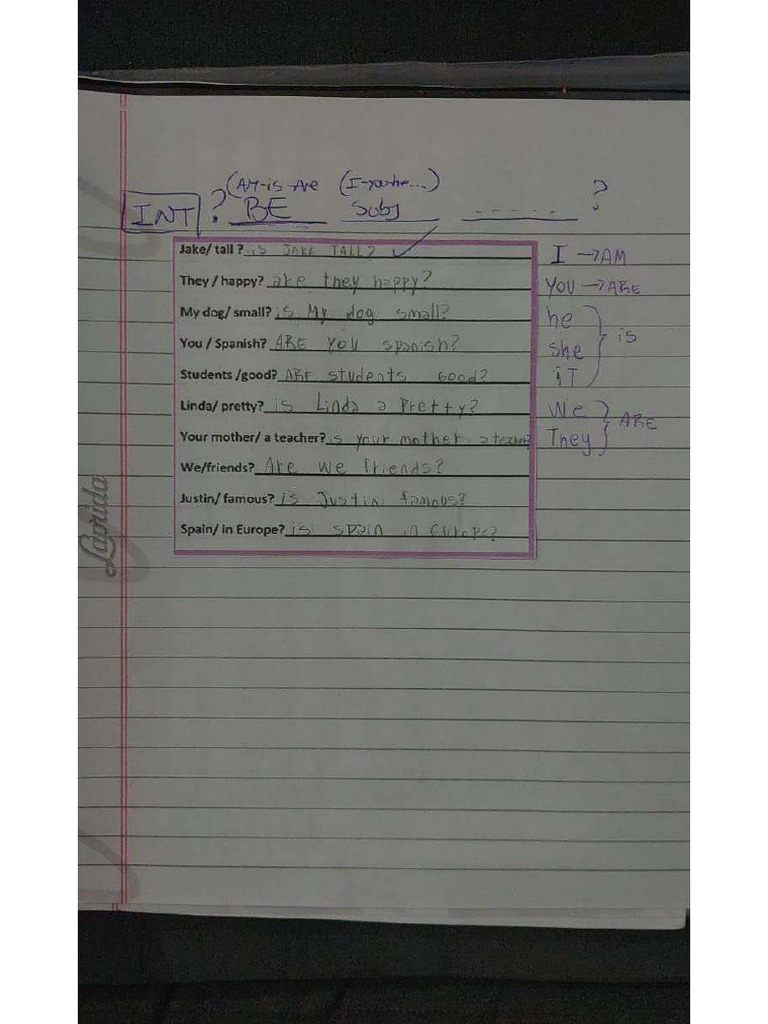 (AM-is-Are (I-you-he...)
INT ? BE Subj ------ ?
Jake/ tall ? is JAKE TALL?
They / happy? are they happy?
My dog/ small? is My dog small?
You / Spanish? ARE YOU spanish?
Students /good? ARE students Good?
Linda/ pretty? is Linda a Pretty?
Your mother/ a teacher? is your mother a teacher?
We/friends? Are we friends?
Justin/ famous? is Justin famous?
Spain/ in Europe? is spain in europe?
I → AM
YOU → ARE
he
she
iT
is
We
They
ARE
Laprida